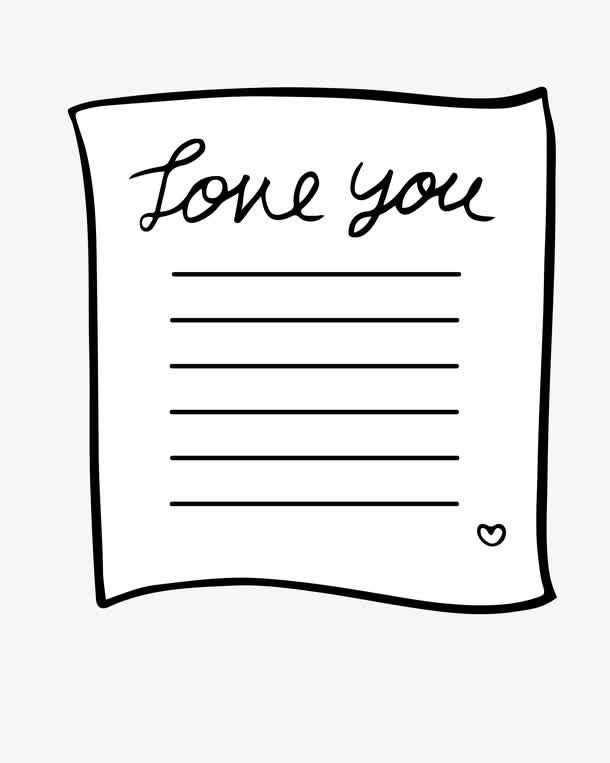 Love you